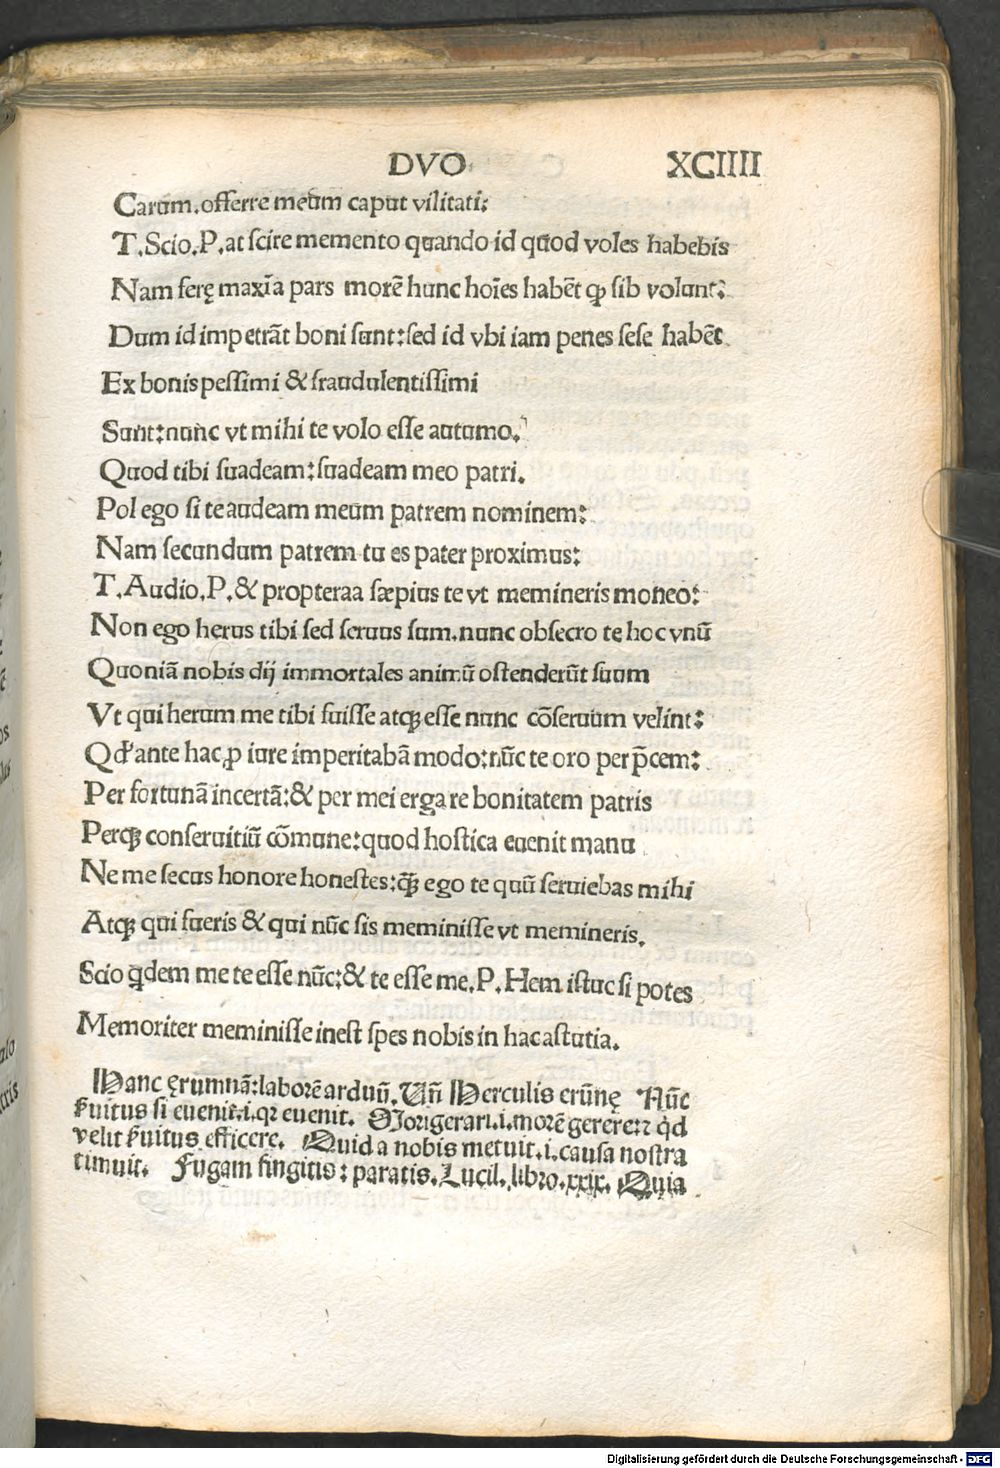 DVO XCIIII
Carum.offerre meum caput vilitati:
T.Scio.P.at scire memento quando id quod voles habebis
Nam ferę maxĩa pars morẽ hunc hoĩes habẽt ꝙ sib volunt:
Dum id impetrãt boni sunt:sed id vbi iam penes sese habẽt
Ex bonis pessimi & fraudulentissimi
Sunt:nunc vt mihi te volo esse autumo.
Quod tibi suadeam:suadeam meo patri.
Pol ego si te audeam meum patrem nominem:
Nam secundum patrem tu es pater proximus:
T.Audio.P.& propteraa sæpius te vt memineris moneo:
Non ego herus tibi sed seruus sum.nunc obsecro te hoc vnũ
Quoniã nobis dij immortales animũ ostenderũt suum
Vt qui herum me tibi fuisse atqꝫ esse nunc cõseruum velint:
Qđ ante hac ꝓ iure imperitabã modo:nũc te oro per p̃cem:
Per fortunã incertã:& per mei erga re bonitatem patris
Perqꝫ conseruitiũ cõmune:quod hostica euenit manu
Ne me secus honore honestes:q̃ꝫ ego te quũ seruiebas mihi
Atqꝫ qui fueris & qui nũc sis meminisse vt memineris.
Scio q̃dem me te esse nũc:& te esse me.P.Hem istuc si potes
Memoriter meminisse inest spes nobis in hac astutia.
Hanc ęrumnã:laborẽ arduũ. Uñ Herculis erũnę Nũc
s̃uitus si euenit.i.qꝛ euenit. Morigerari.i.morẽ gerere:⁊ qđ
velit s̃uitus efficere. Quid a nobis metuit.i.causa nostra
timuit. Fugam fingitis: paratis.Lucil.libro.xxix. Quia